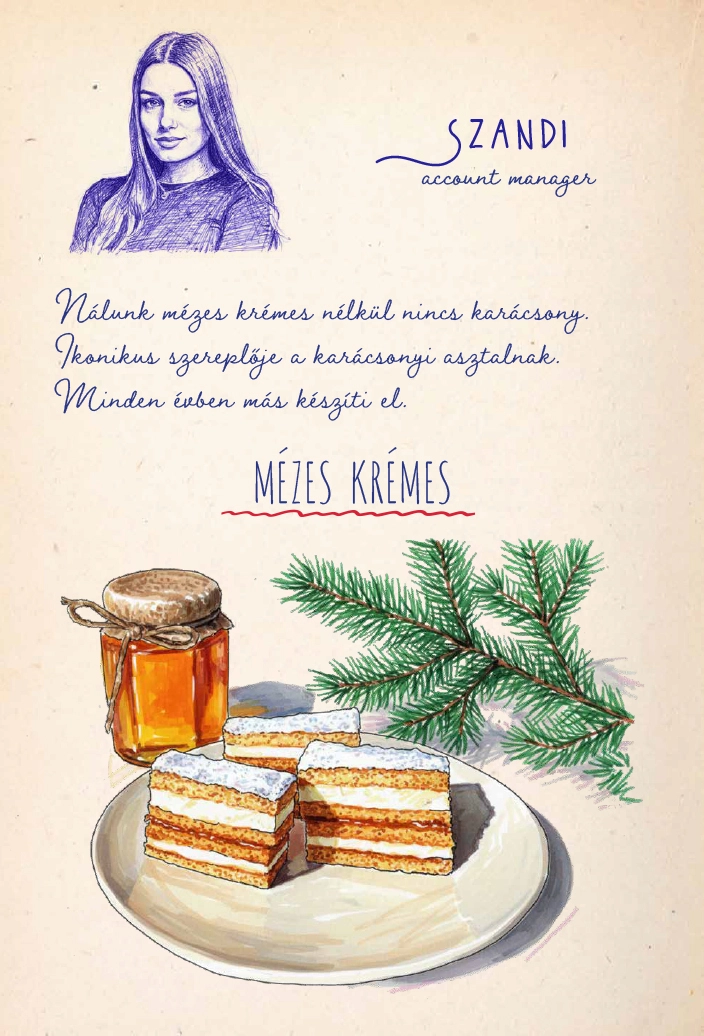 SZANDI
account manager
Nálunk mézes krémes nélkül nincs karácsony.
Ikonikus szereplője a karácsonyi asztalnak.
Minden évben más készíti el.
MÉZES KRÉMES